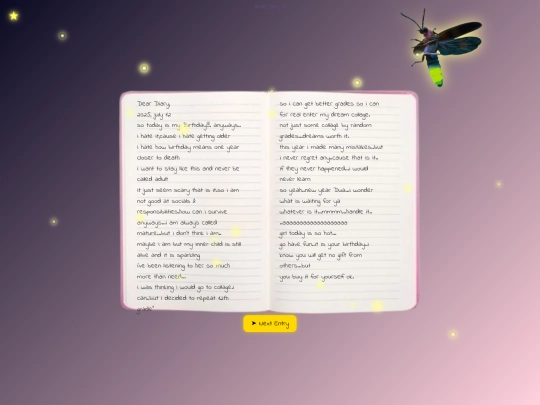 Dear Diary,
2025, july 12
so today is my Birthday!! anyways...
i hate it,cause i hate getting older
i hate how birthday means one year
closer to death
i want to stay like this and never be
called adult
it just seem scary that is it.so i am
not good at socials &
responsibilities.how can i survive
anyways... i am always called
mature...but i don't think i am...
maybe i am but my inner child is still
alive and it is sparkling
i've been listening to her so much
more than need...
i was thinking i would go to collage,i
can,but i decided to repeat 12th
grade"
so i can get better grades so i can
for real enter my dream collage,
not just some collage by random
grades...dreams worth it.
this year i made many mistakes...but
i never regret any,cause that is it..
if they never happened,i would
never learn
so yeah,new year Dua...i wonder
what is waiting for ya
whatever is it...mmmm...handle it..
girl today is so hot...
go have fun,it is your birthday,i
know you will get no gift from
others...but
you buy it for yourself ok,
➤ Next Entry